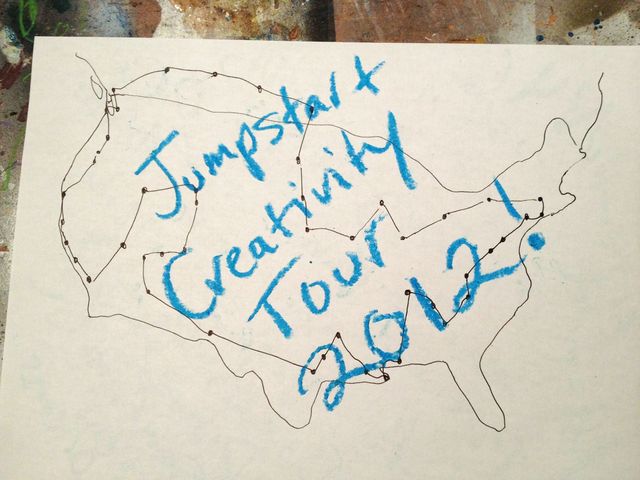 Jumpstart
Creativity
Tour
2012!